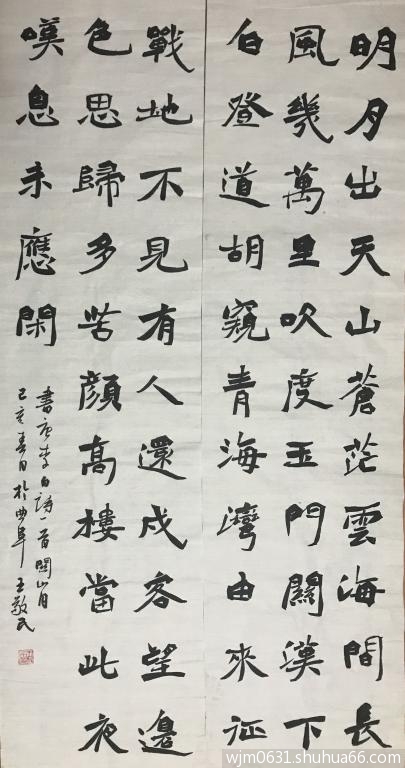 明月出天山蒼茫雲海間長
風幾萬里吹度玉門關漢下
白登道胡窺青海灣由來征
戰地不見有人還戍客望邊
色思歸多苦顏高樓當此夜
嘆息未應閑
書唐李白詩一首關山月
己亥春日於曲阜王敬民
wjm0631.shuhua66.com